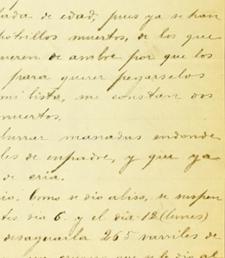 tada de edad, pues ya se han
potrillos muertos, de los que
mueren de ambre por que los
para querer pegarselos
mi lista, me constan dos
muertos.
manadas en donde
les de empadre, y que ya
de cria.
io. Como se dio aliso, se suspen
tes dia 6 y el dia 12 (lunes)
desaguarla 265 barriles de